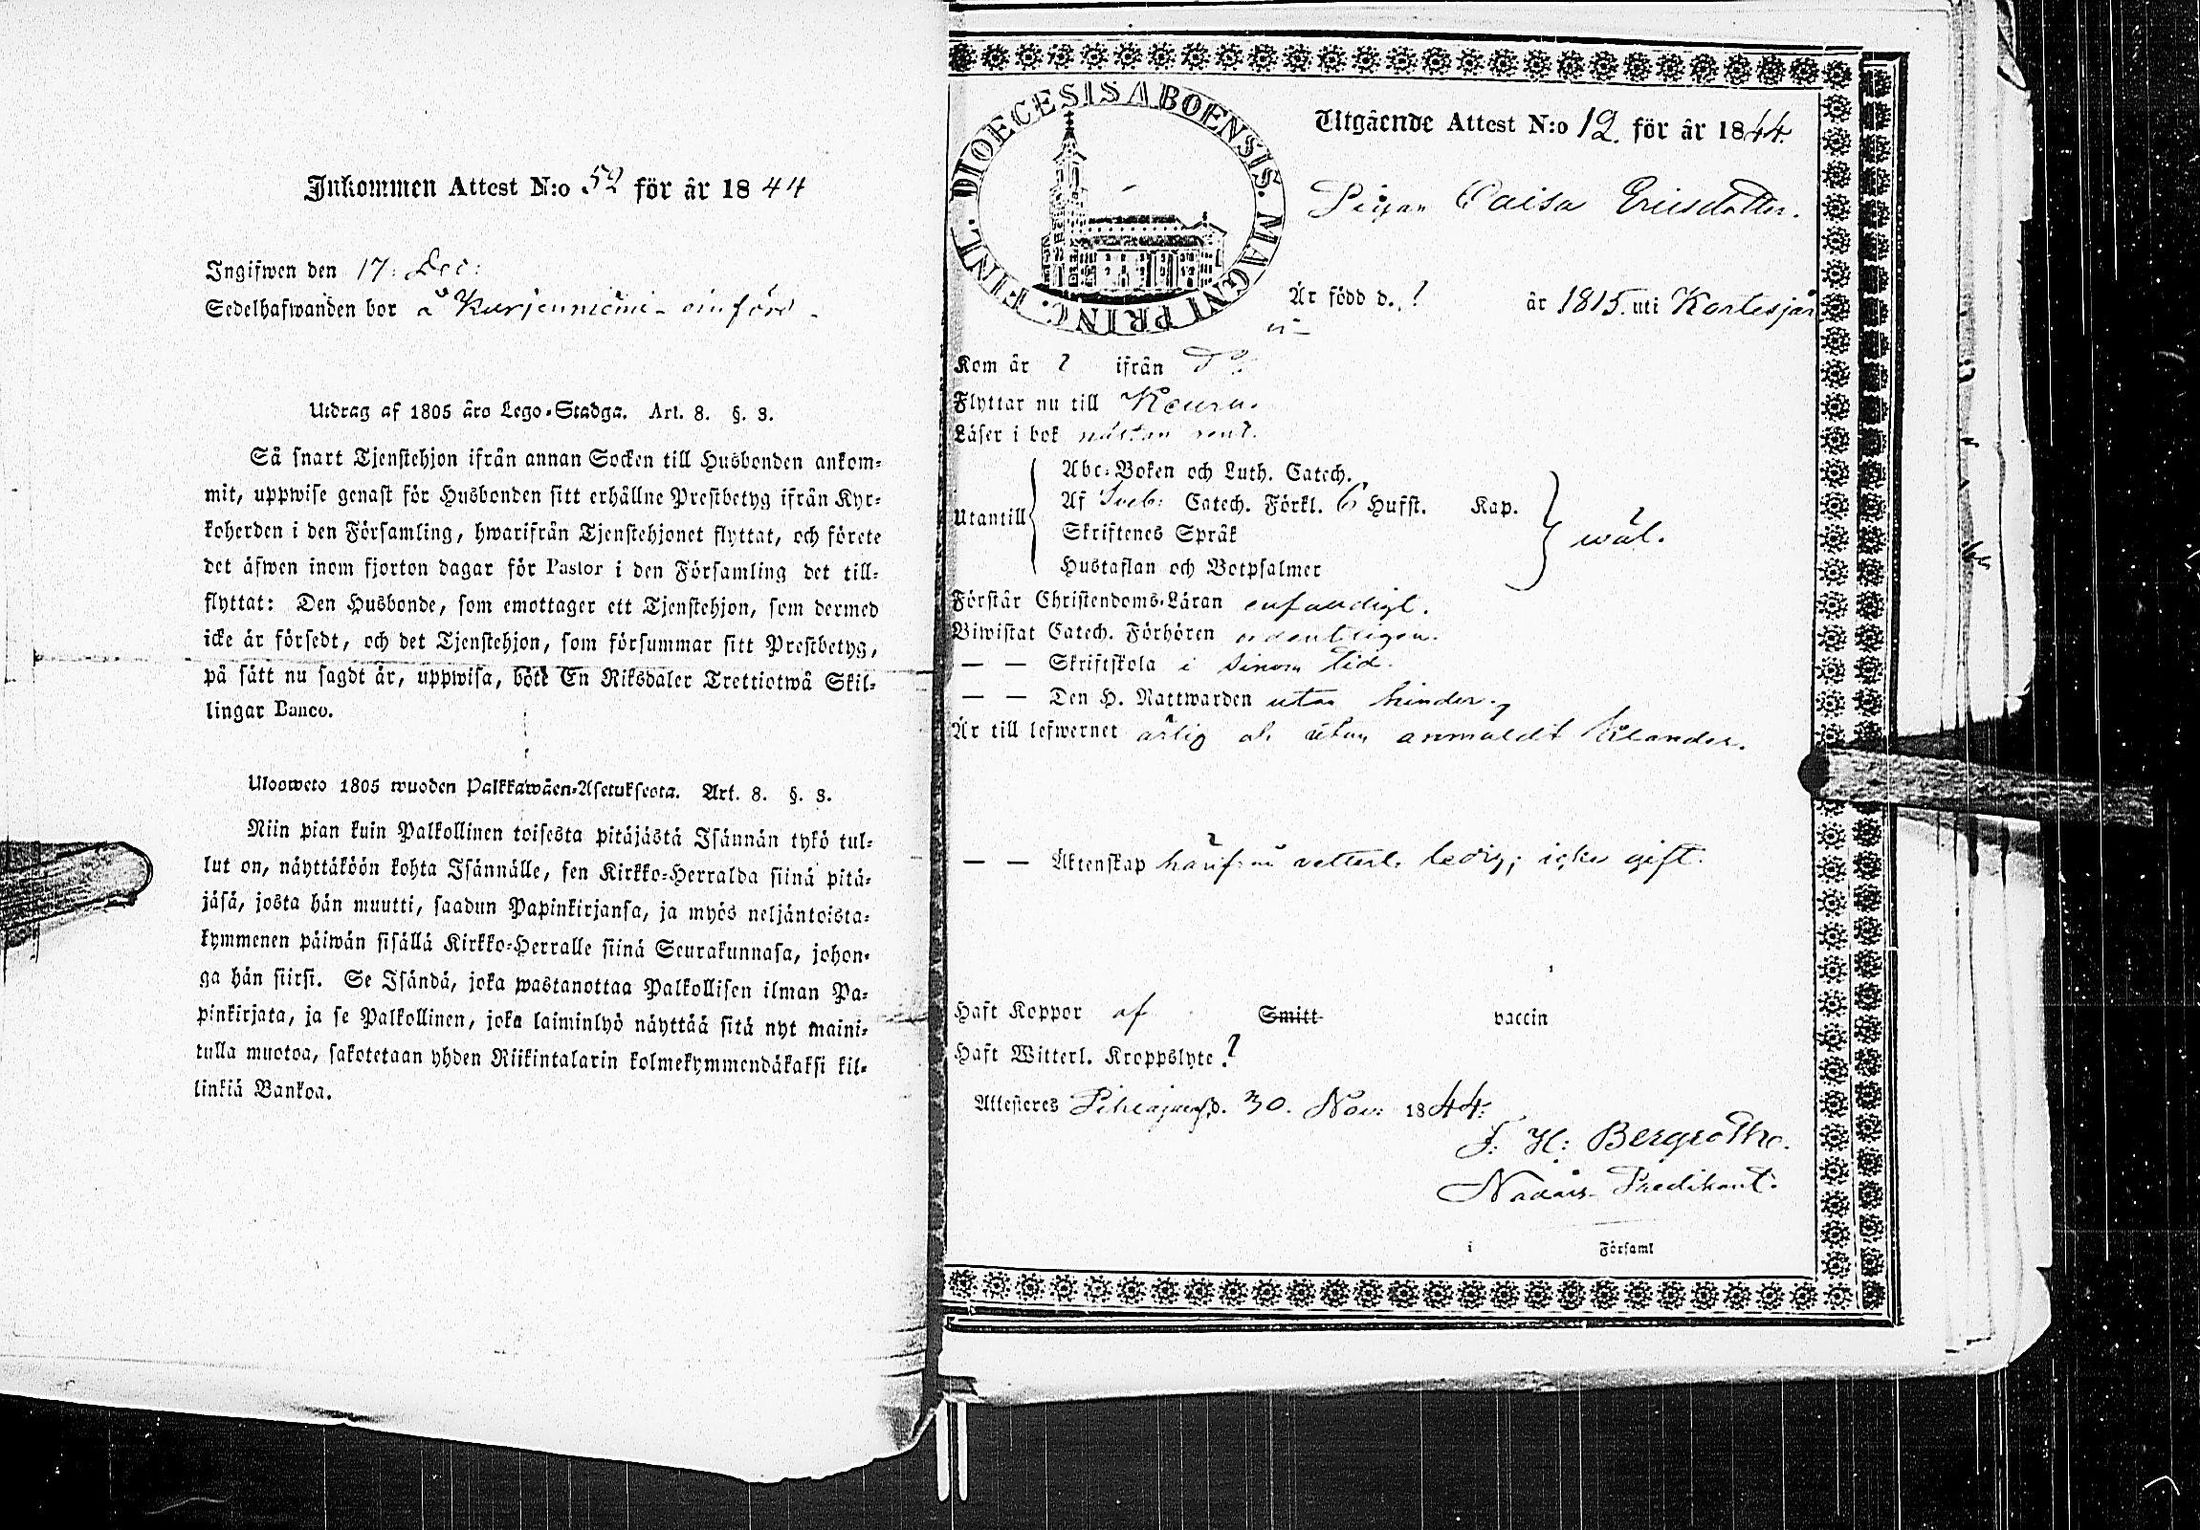 Inkommen Attest N:o 52 för år 1844
Ingifwen den 17: Dec:
Sedelhafwanden bor å Kurjenniemi - införd -
Utdrag af 1805 års Lego-Stadga. Art. 8. §. 3.
Så snart Tjenstehjon ifrån annan Socken till Husbonden ankom-
mit, uppwise genast för Husbonden sitt erhållne Prestbetyg ifrån Kyr-
koherden i den Församling, hwarifrån Tjenstehjonet flyttat, och förete
det äfwen inom fjorton dagar för Pastor i den Församling det till-
flyttat: Den Husbonde, som emottager ett Tjenstehjon, som dermed
icke är försedt, och det Tjenstehjon, som försummar sitt Prestbetyg,
på sätt nu sagdt är, uppwisa, böte En Riksdaler Trettiotwå Skil-
lingar Banco.
Ulosweto 1805 wuoden Palkkawäen-Asetuksesta. Art. 8. §. 3.
Niin pian kuin Palkollinen toisesta pitäjästä Isännän tykö tul-
lut on, näyttäköön kohta Isännälle, sen Kirkko-Herralda siinä pitä-
jäsä, josta hän muutti, saadun Papinkirjansa, ja myös neljäntoista-
kymmenen päiwän sisällä Kirkko-Herralle siinä Seurakunnasa, johon-
ga hän siirsi. Se Isändä, joka wastanottaa Palkollisen ilman Pa-
pinkirjata, ja se Palkollinen, joka laiminlyö näyttää sitä nyt maini-
tulla muotoa, sakotetaan yhden Riikintalarin kolmekymmendäkaksi kil-
linkiä Bankoa.
DIOECESIS ABOENSIS. MAGNI PRINC. FINL.
Utgående Attest N:o 12. för år 1844.
Pigan Caisa Ericsdotter.
Är född d. ? år 1815. uti Kortesjär
vi
Kom år ? ifrån D:o
Flyttar nu till Keuru.
Läser i bok nästan rent.
Abc-Boken och Luth. Catech.
Utantill Af Sveb: Catech. Förkl. 6 Hufst. Kap.
Skriftenes Språk
wäl.
Hustaflan och Botpsalmer
Förstår Christendoms-Läran enfaldigt.
Biwistat Catech. Förhören ordentligen.
— — Skriftskola i sinom tid.
— — Den H. Nattwarden utan hinder.
Är till lefwernet ärlig och utan anmäldt klander.
— — Äktenskap härifrån vetterl. ledig; icke gift.
Haft Koppor af Smitt vaccin
Haft Witterl. Kroppslyte ?
Attesteres Pihlajavesi d. 30. Nov: 1844:
J. H: Bergroth.
Nådårs Predikant.
i Församl